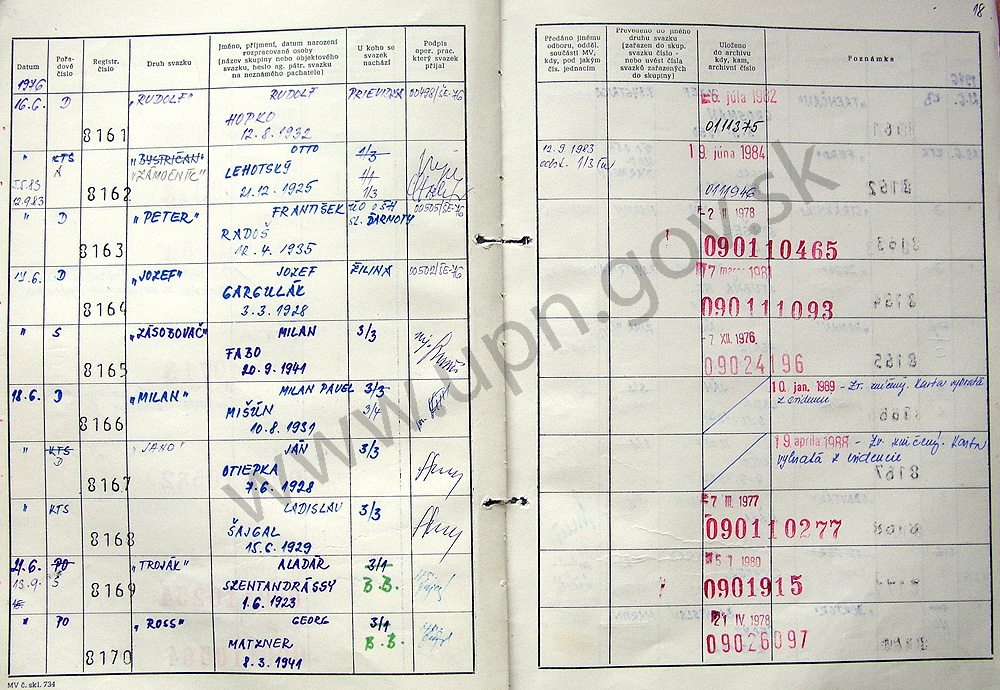 18
Datum
Pořadové číslo
Registr. číslo
Druh svazku
Jméno, příjmení, datum narození
rozpracované osoby
(název skupiny nebo objektového
svazku, heslo ag. pátr. svazku
na neznámého pachatele)
U koho se
svazek
nachází
Podpis
oper. prac.
který svazek
přijal
Předáno jinému
odboru, odděl.
součásti MV,
kdy, pod jakým
čís. jednacím
Převedeno do jiného
druhu svazku
(zařazen do skup.
svazku číslo -
nebo uvést čísla
svazků zařazených
do skupiny)
Uloženo
do archivu
kdy, kam,
archivní číslo
Poznámka
1976
16.6. D 8161 „RUDOLF" RUDOLF PRIEVIDZA 00498/ŠE-76
HOPKO
12.8.1932
6. júla 1982
0111375
" KTS A 8162 „BYSTRIČAN" OTTO 1/3
„ZÁMOČNÍK" LEHOTSKÝ
12.9.83 21.12.1925 1/3
12.9.1983
19. júna 1984
0111946
" D 8163 „PETER" FRANTIŠEK 00505/ŠE-76
RADOŠ
10.4.1935
-2 II 1978
090110465
17.6. D 8164 „JOZEF" JOZEF ŽILINA 00502/ŠE-76
GARGULÁK
3.3.1928
090111093
" S 8165 „ZÁSOBOVAČ" MILAN 3/3
FABO
20.9.1941
-7 XII. 1976
09024196
18.6. D 8166 „MILAN" MILAN PAVEL 3/3
MIŠÚN 3/4
10.8.1931
10. jan. 1989 - Zv. zničený. Karta vybratá
z evidencie
" KTS D 8167 „JANO" JÁN 3/3
OTIEPKA
7.6.1928
19. apríla 1988 - Zv. zničený. Karta
vybratá z evidencie
" KTS 8168 LADISLAV 3/3
ŠAJGAL
15.6.1929
-7 III. 1977
090110277
21.6. PO 8169 „TROJÁK" ALADÁR 3/1
13.9. S SZENTANDRÁSSY B.B.
1.6.1923
1980
0901915
" PO 8170 „ROSS" GEORG 3/1
MATZNER B.B.
8.3.1941
21 IV. 1978
09026097
MV č. skl. 734
www.upn.gov.sk